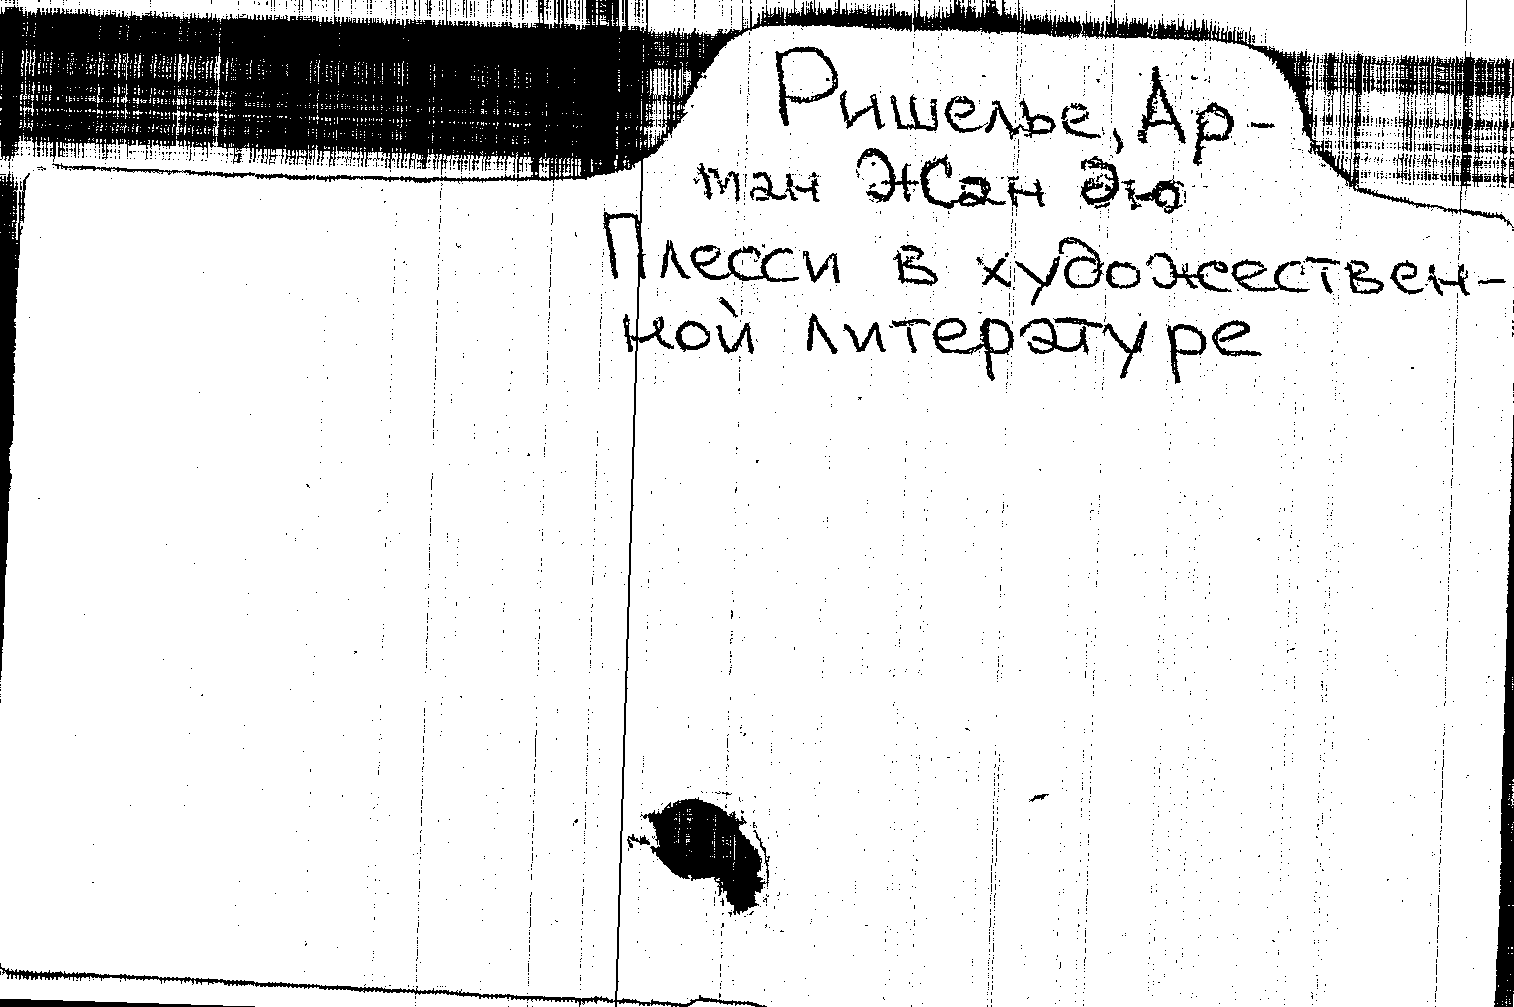 Ришелье, Ар-
ман Жан дю
Плесси в художествен-
ной литературе